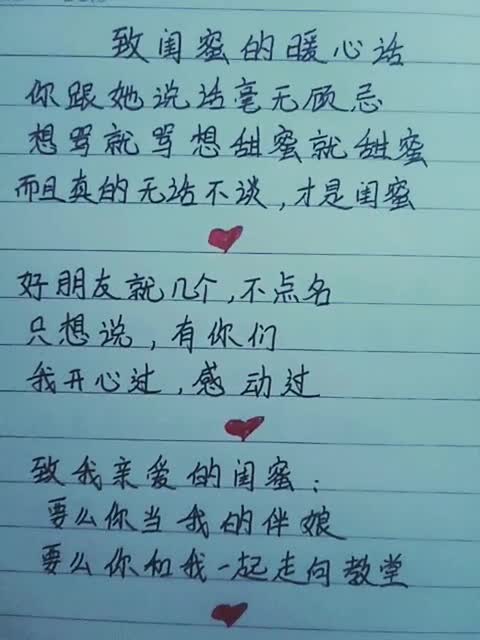 致闺蜜的暖心话
你跟她说话毫无顾忌
想骂就骂想甜蜜就甜蜜
而且真的无话不谈,才是闺蜜
好朋友就几个,不点名
只想说,有你们
我开心过,感动过
致我亲爱的闺蜜:
要么你当我的伴娘
要么你和我一起走向教堂